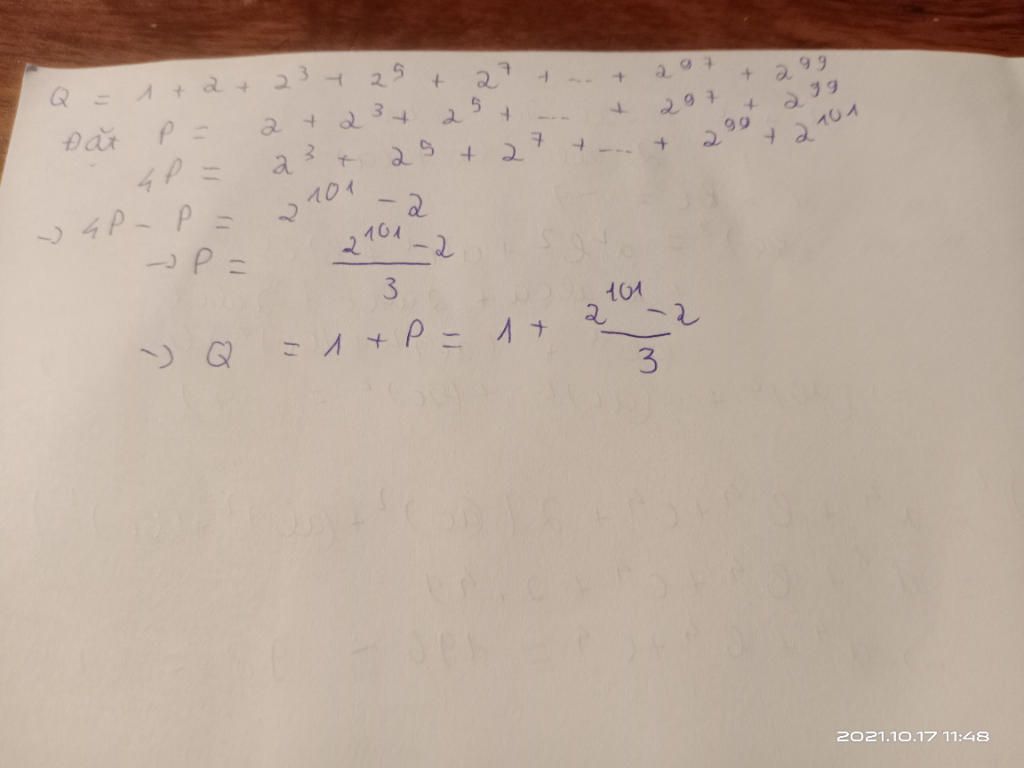 Q = 1 + 2 + 2^3 + 2^5 + 2^7 + ... + 2^97 + 2^99
Đặt P = 2 + 2^3 + 2^5 + ... + 2^97 + 2^99
4P = 2^3 + 2^5 + 2^7 + ... + 2^99 + 2^101
→ 4P - P = 2^101 - 2
→ P = (2^101 - 2)/3
→ Q = 1 + P = 1 + (2^101 - 2)/3
2021.10.17 11:48